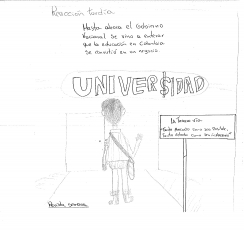 Reacción tardía
Hasta ahora el Gobierno
Nacional se vino a enterar
que la educación en Colombia
se convirtió en un negocio.
UNIVERSIDAD
La Tercera vía
"Tanto Mercado como sea Posible,
Tanto Estado como sea